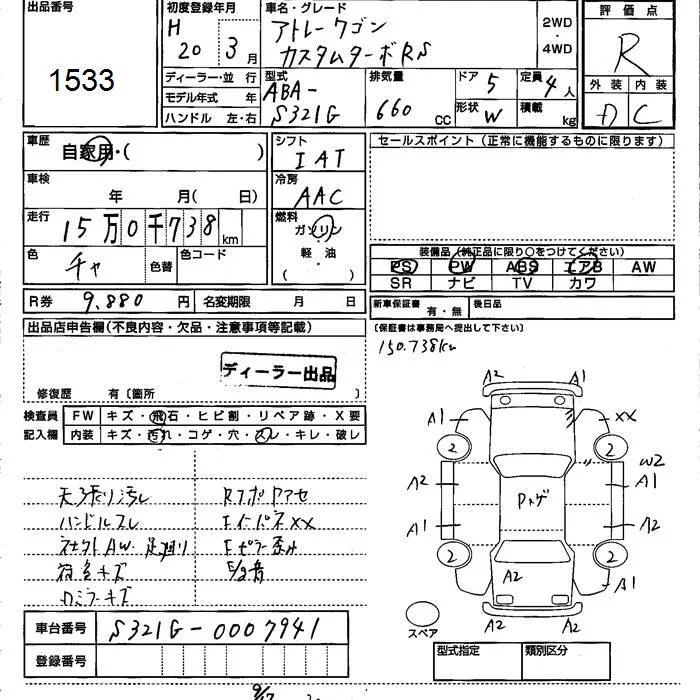 出品番号
1533
初度登録年月
H
20 3月
車名・グレード
アトレーワゴン
カスタムターボRS
2WD
・
4WD
評価点
R
外装 内装
D C
ディーラー・並行
モデル年式 年
ハンドル 左・右
型式
ABA-
S321G
排気量
660 CC
ドア 5
形状 W
定員 4人
積載 kg
車歴
自家用・( )
車検
年 月( 日)
走行
15万0千738km
色
チャ
色替
色コード
シフト
IAT
冷房
AAC
燃料
ガソリン
軽・油
( )
セールスポイント(正常に機能するものに限ります)
装備品(純正品に限り○をつけてください)
PS PW ABS エアB AW
SR ナビ TV カワ
R券 9,880円
名変期限 月 日
新車保証書 有・無
後日品
(保証書は事務局へ提出して下さい)
150.738km
出品店申告欄(不良内容・欠品・注意事項等記載)
ディーラー出品
修復歴 有〔箇所 〕
検査員
記入欄
FW キズ・飛石・ヒビ割・リペア跡・X要
内装 キズ・汚れ・コゲ・穴・スレ・キレ・破レ
天張り汚レ
ハンドルスレ
AW・足廻り
キズ
ミラーキズ
FインパネXX
Fピラー歪み
E/g音
A2 A1
A1 XX
2 2
A2 W2
A1
Pトゲ
A1 A2
2 2
A2 A1
A2 A2
スペア
車台番号 S321G-0007941
登録番号
型式指定 類別区分